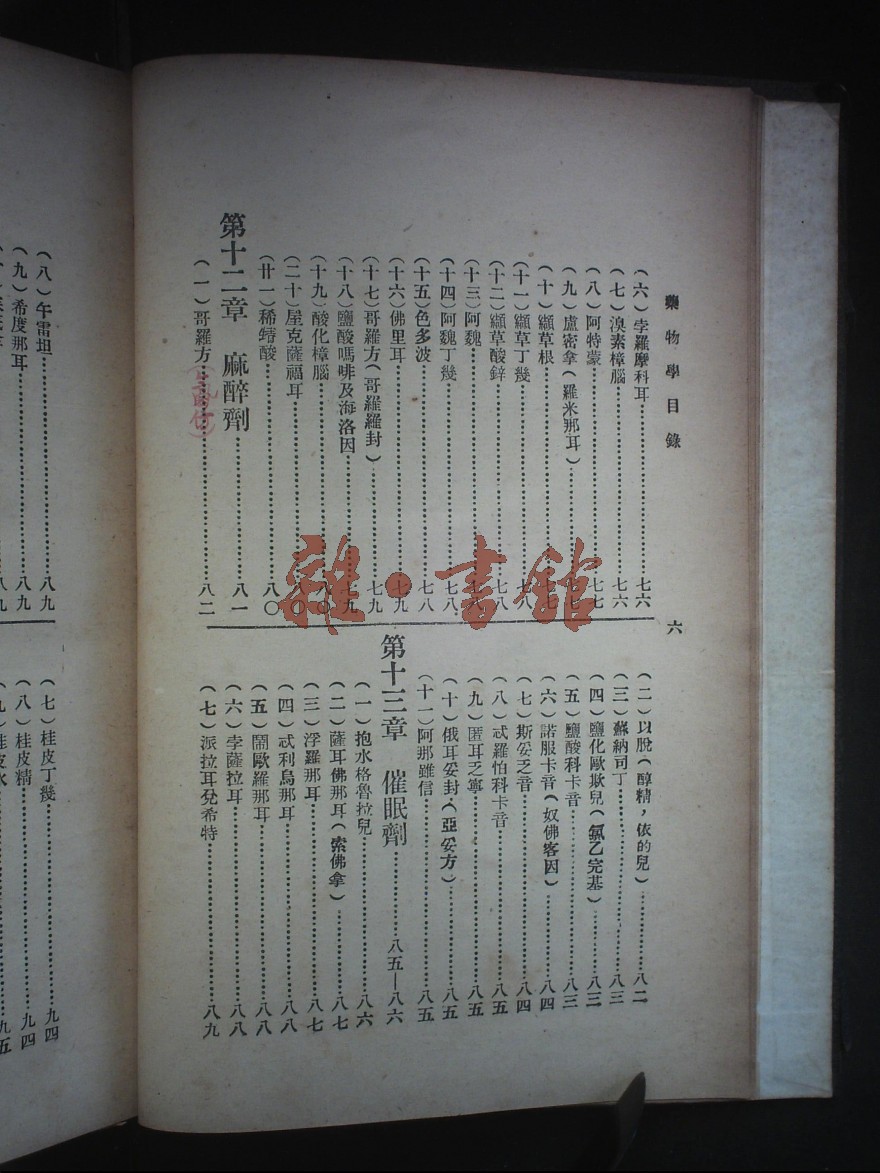 藥物學目錄
六
（六）孛羅摩科耳⋯⋯七六
（七）溴素樟腦⋯⋯七六
（八）阿特蒙⋯⋯七七
（九）盧密拿（羅米那耳）⋯⋯七七
（十）纈草根⋯⋯七七
（十一）纈草丁幾⋯⋯七八
（十二）纈草酸鋅⋯⋯七八
（十三）阿魏⋯⋯七八
（十四）阿魏丁幾⋯⋯七八
（十五）色多波⋯⋯七八
（十六）佛里耳⋯⋯七九
（十七）哥羅方（哥羅羅封）⋯⋯七九
（十八）鹽酸嗎啡及海洛因⋯⋯七九
（十九）酸化樟腦⋯⋯八〇
（二十）屋克薩福耳⋯⋯八〇
（廿一）稀蟮酸⋯⋯八〇
第十二章 麻醉劑⋯⋯八一
（一）哥羅方⋯⋯八二
（二）以脫（醇精，依的兒）⋯⋯八二
（三）蘇納司丁⋯⋯八三
（四）鹽化歐歎兒（氯乙完基）⋯⋯八三
（五）鹽酸科卡音⋯⋯八三
（六）諾服卡音（奴佛客因）⋯⋯八四
（七）斯妥乏音⋯⋯八四
（八）忒羅怕科卡音⋯⋯八五
（九）匿耳乏寧⋯⋯八五
（十）俄耳妥封（亞妥方）⋯⋯八五
（十一）阿那雖信⋯⋯八五
第十三章 催眠劑⋯⋯八五—八六
（一）抱水格魯拉兒⋯⋯八六
（二）薩耳佛那耳（索佛拿）⋯⋯八七
（三）浮羅那耳⋯⋯八七
（四）忒利烏那耳⋯⋯八八
（五）鬧歐羅那耳⋯⋯八八
（六）孛薩拉耳⋯⋯八八
（七）派拉耳兌希特⋯⋯八九
（八）午雷坦⋯⋯八九
（九）希度那耳⋯⋯八九
八九
（七）桂皮丁幾⋯⋯九四
（八）桂皮精⋯⋯九四
（九）桂皮水⋯⋯九五
雜·書館